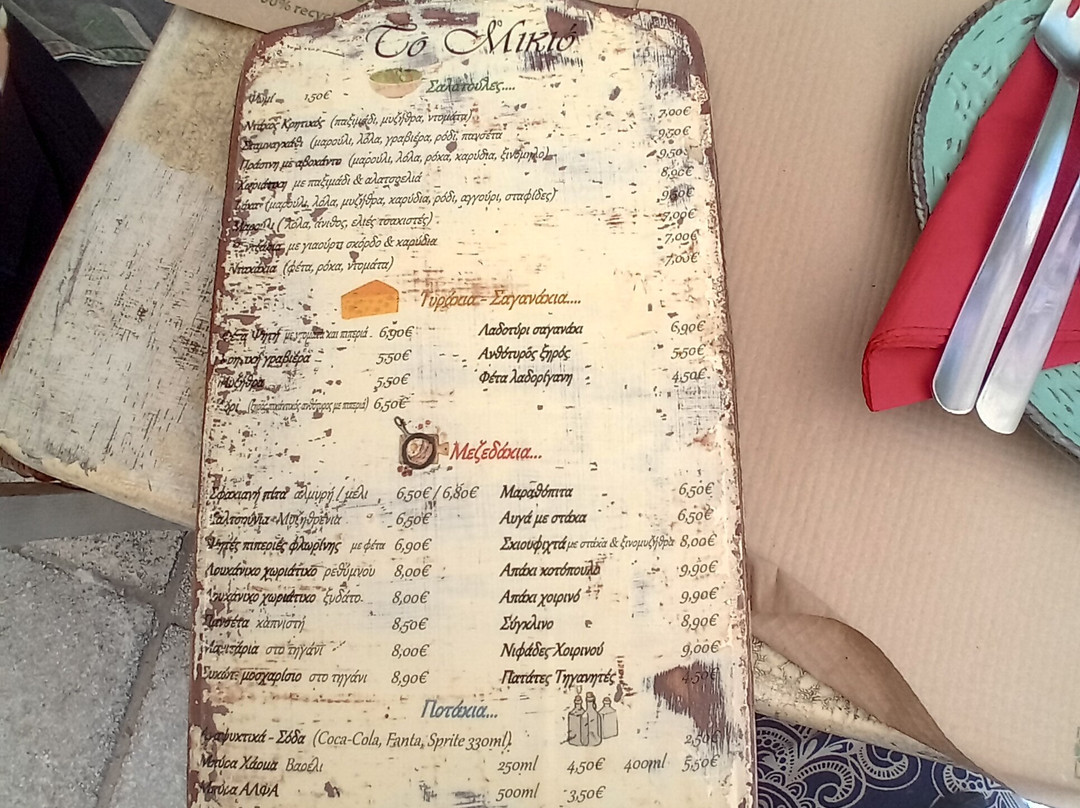 100% recyc
Το Μικιό
Σαλατούλες....
Ψωμί 1,50€
Ντάκος Κρητικός (παξιμάδι, μυζήθρα, ντομάτα) 7,00€
Σταμναγκάθι (μαρούλι, λόλα, γραβιέρα, ρόδι, πανσέτα 9,50€
Πράσινη με αβοκάντο (μαρούλι, λόλα, ρόκα, καρύδια, ξινόμηλο) 9,50€
Χωριάτικη με παξιμάδι & αλατσολιά 8,90€
(μαρούλι, λόλα, μυζήθρα, καρύδια, ρόδι, αγγούρι, σταφίδες) 9,50€
Μαρούλι (λόλα, άνιθος, ελιές τσακιστές) 7,00€
Παντζάρια με γιαούρτι σκόρδο & καρύδια 7,00€
Ντακάκια (φέτα, ρόκα, ντομάτα) 7,00€
Τυράκια - Σαγανάκια....
Φέτα Ψητή με ντομάτα και πιπεριά . 6,90€ Λαδοτύρι σαγανάκι 6,90€
γραβιέρα 5,50€ Ανθότυρός ξηρός 5,50€
Μυζήθρα 5,50€ Φέτα λαδορίγανη 4,50€
ανθότυρος με πιπεριά) 6,50€
Μεζεδάκια...
Σφακιανή πίτα αλμυρή / μέλι 6,50€ / 6,80€ Μαραθόπιτα 6,50€
Καλτσούνια Μυζηθρένια 6,50€ Αυγά με στάκα 6,50€
Ψητές πιπεριές φλωρίνης με φέτα 6,90€ Σκιουφιχτά με στάκα & ξινομυζήθρα 8,00€
Λουκάνικο χωριάτικο ρεθύμνου 8,00€ Απάκι κοτόπουλο 9,90€
Λουκάνικο χωριάτικο ξυδάτο. 8,00€ Απάκι χοιρινό 9,90€
Πανσέτα καπνιστή 8,50€ Σύγκλινο 8,90€
Μανιτάρια στο τηγάνι 8,00€ Νιφάδες Χοιρινού 9,00€
Συκώτι μοσχαρίσιο στο τηγάνι 8,90€ Πατάτες Τηγανητές 4,50€
Ποτάκια...
Αναψυκτικά - Σόδα (Coca-Cola, Fanta, Sprite 330ml) 2,50€
Μπύρα Χάρμα Βαρέλι 250ml 4,50€ 400ml 5,50€
Μπύρα ΑΛΦΑ 500ml 3,50€